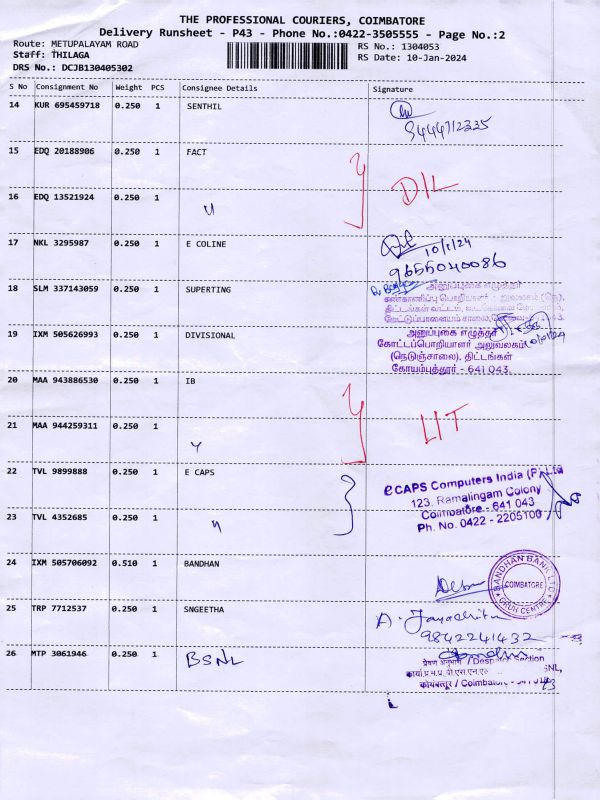 THE PROFESSIONAL COURIERS, COIMBATORE
Delivery Runsheet - P43 - Phone No.:0422-3505555 - Page No.:2
Route: METUPALAYAM ROAD RS No.: 1304053
Staff: THILAGA RS Date: 10-Jan-2024
DRS No.: DCJB130405302
S No Consignment No Weight PCS Consignee Details Signature
14 KUR 695459718 0.250 1 SENTHIL
9444712335
15 EDQ 20188906 0.250 1 FACT
DIL
16 EDQ 13521924 0.250 1
17 NKL 3295987 0.250 1 E COLINE
10/1/24
9655040086
18 SLM 337143059 0.250 1 SUPERTING
அனுப்புகை எழுத்தர்
கண்காணிப்பு பொறியாளர் அலுவலகம் (நெ),
திட்டங்கள் வட்டம்,
மேட்டுப்பாளையம் சாலை,
19 IXM 505626993 0.250 1 DIVISIONAL
அனுப்புகை எழுத்தர்
கோட்டப்பொறியாளர் அலுவலகம்
(நெடுஞ்சாலை), திட்டங்கள்
கோயம்புத்தூர் - 641 043.
20 MAA 943886530 0.250 1 IB
LIT
21 MAA 944259311 0.250 1
22 TVL 9899888 0.250 1 E CAPS
eCAPS Computers India (P) Ltd
123, Ramalingam Colony
Coimbatore - 641 043
Ph. No. 0422 - 2205100
23 TVL 4352685 0.250 1
24 IXM 505706092 0.510 1 BANDHAN
BANDHAN BANK LTD
COIMBATORE
GRUH CENTRE
25 TRP 7712537 0.250 1 SNGEETHA
9842241432
26 MTP 3061946 0.250 1 BSNL
प्रेषण अनुभाग / Despatch Section
BSNL,
कोयंबत्तूर / Coimbatore